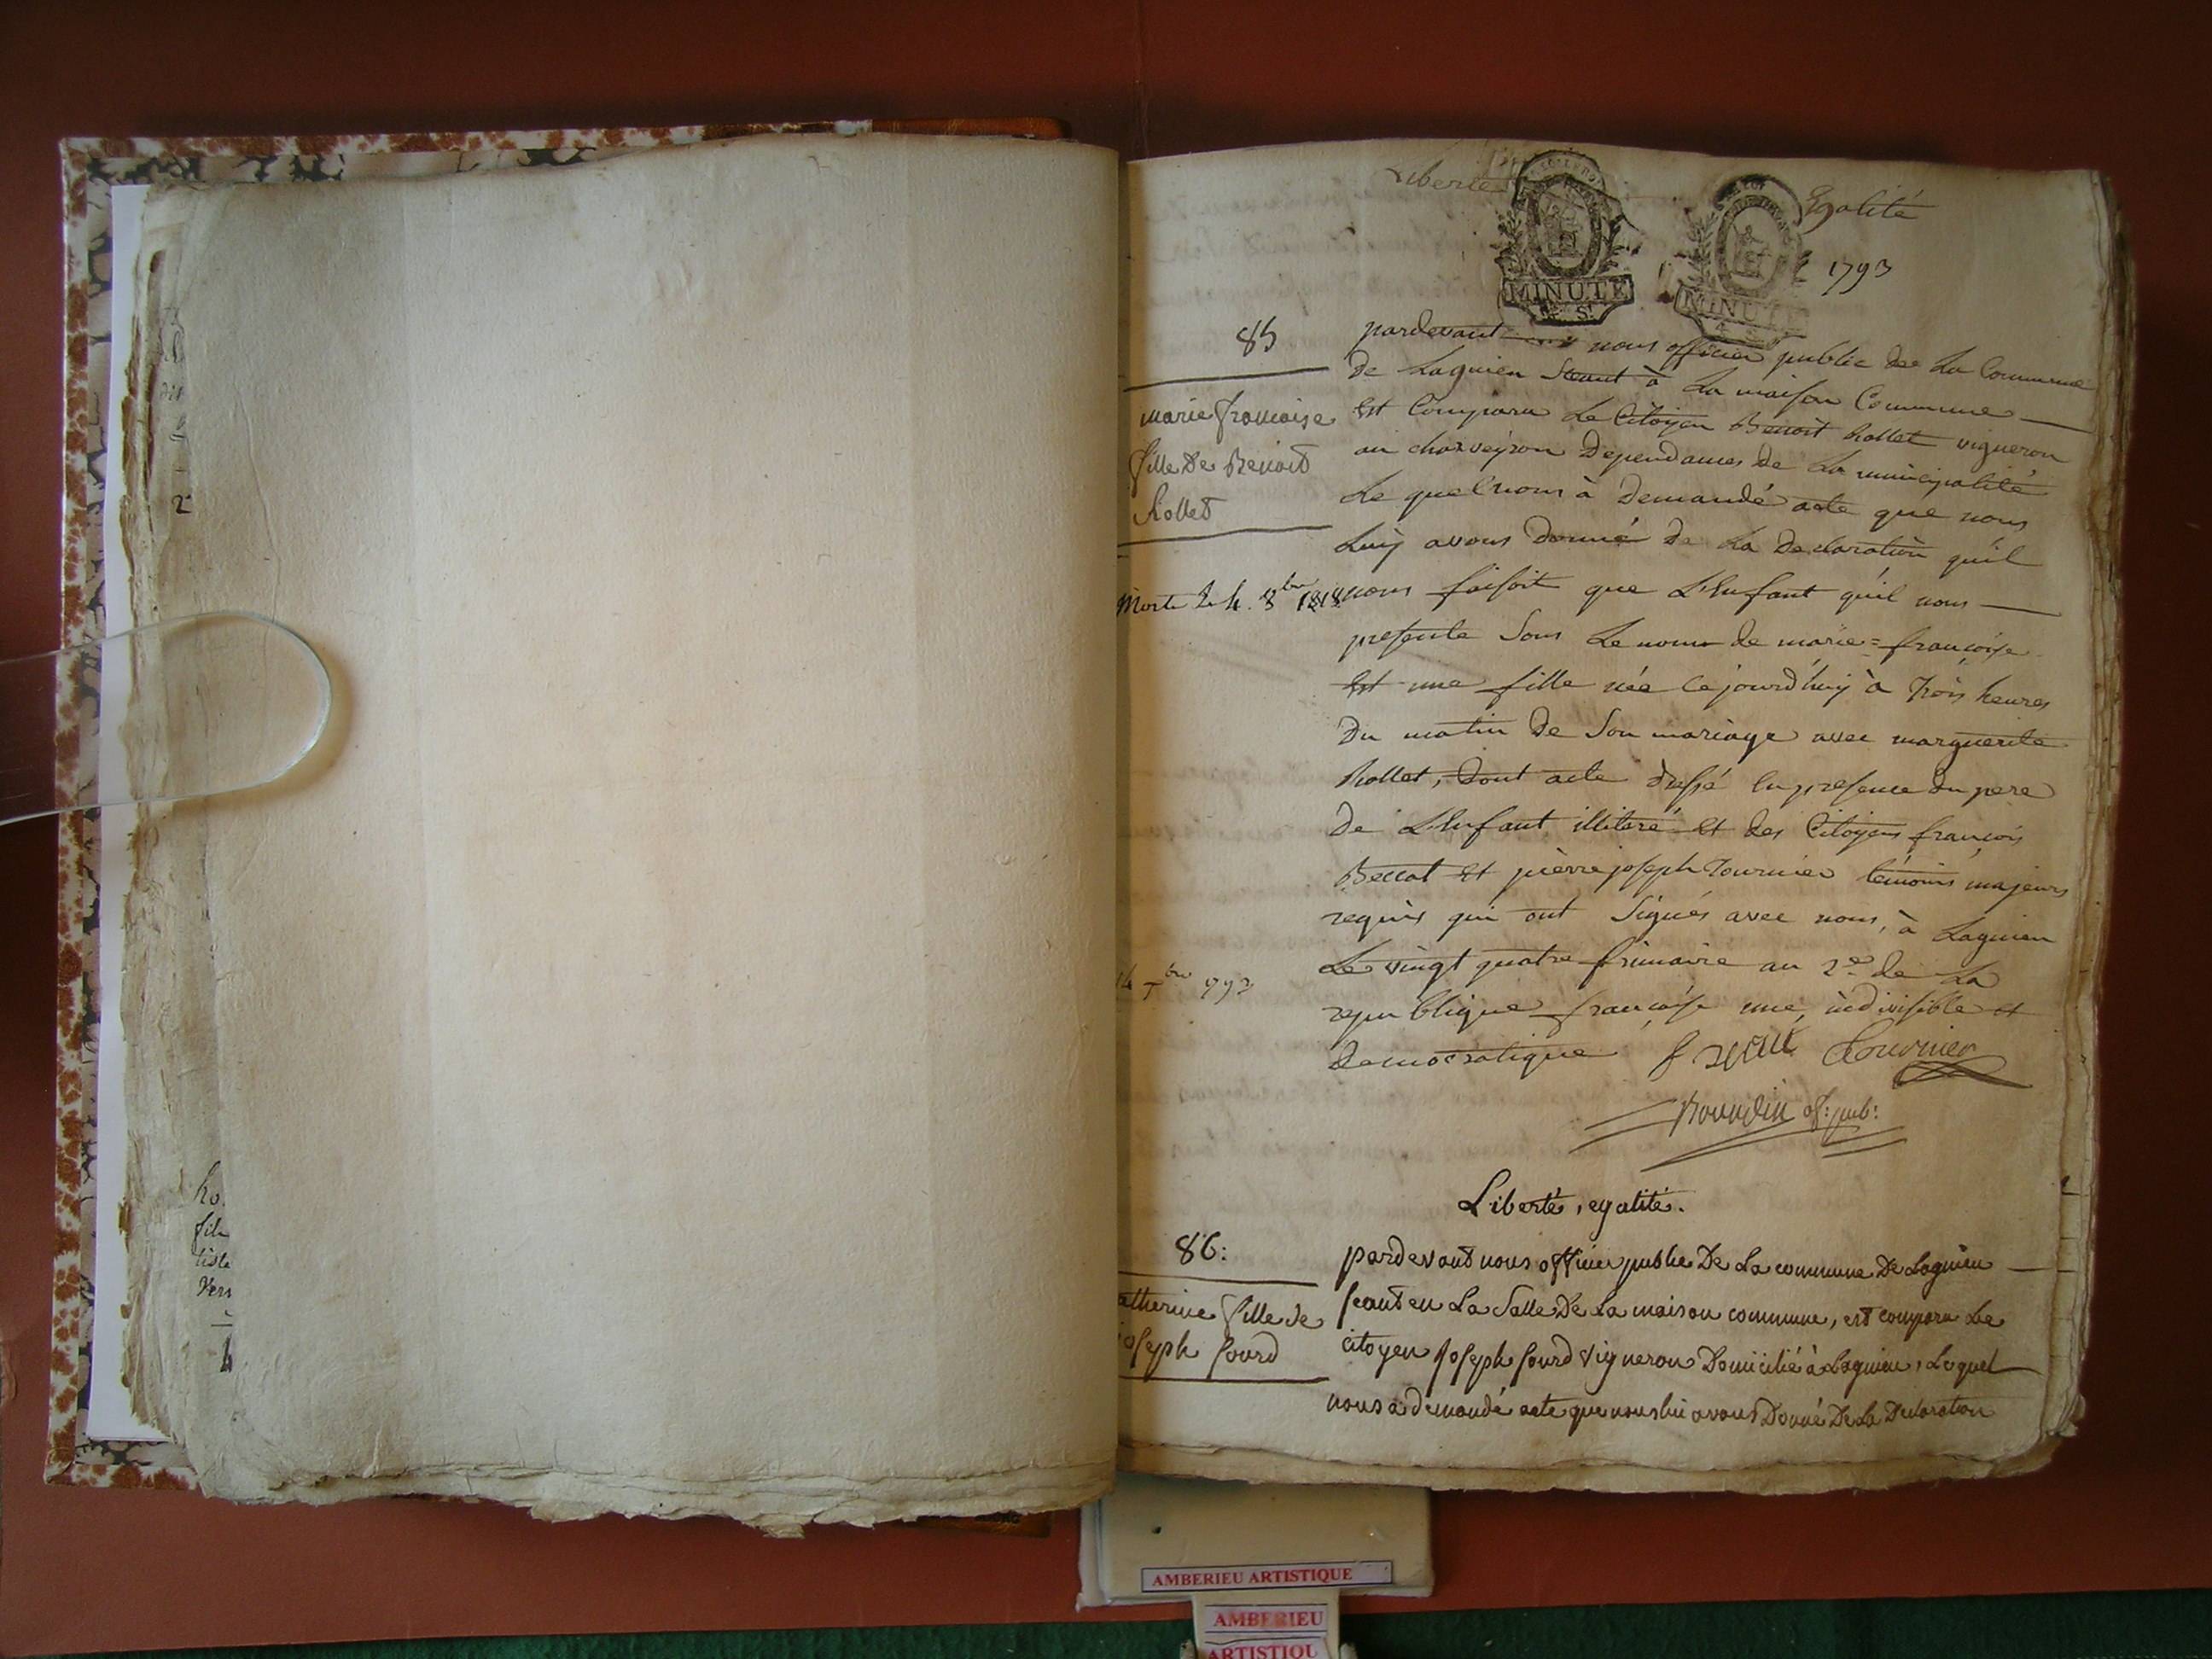 Liberté
Egalité
MINUTE
4 S.
MINUTE
4
1793
85
marie francoise
fille De Benoit
Rollet
Morte Le 4. 8bre 1818
14 xbre 1793
pardevant nous officier public de La Commune
de Lagnieu Seant à La maison Commune
Est Comparu Le Citoyen Benoit Rollet vigneron
au charveyron Dependances de La municipalité
Le quel nous à Demandé acte que nous
Luiÿ avons donné de La Declaration qu'il
nous faisoit que L'Enfant qu'il nous
presente Sous Le nom de marie=françoise
Est une fille née Cejourd'huiÿ à Trois heures
Du matin De Son mariage avec marguerite
Rollet, Dont acte dressé En presence du pere
De L'Enfant illiteré Et des Citoyens françois
Beccat Et pierre joseph Tournier témoins majeurs
requis qui ont Signés avec nous, à Lagnieu
Le vingt quatre frimaire an 2e. de La
republique françoise une, indivisible et
Democratique Tournier
of: pub:
Liberté, egalité.
86:
atherine fille de
joseph Sourd
pardevant nous officier public De La commune De Lagnieu
seant en La Salle De La maison commune, est comparu Le
citoyen Joseph Sourd vigneron Domicilié à Lagnieu, Lequel
nous a demandé acte que nous lui avons Donné De La Declaration
2
ho.
AMBERIEU ARTISTIQUE
AMBERIEU
ARTISTIQU